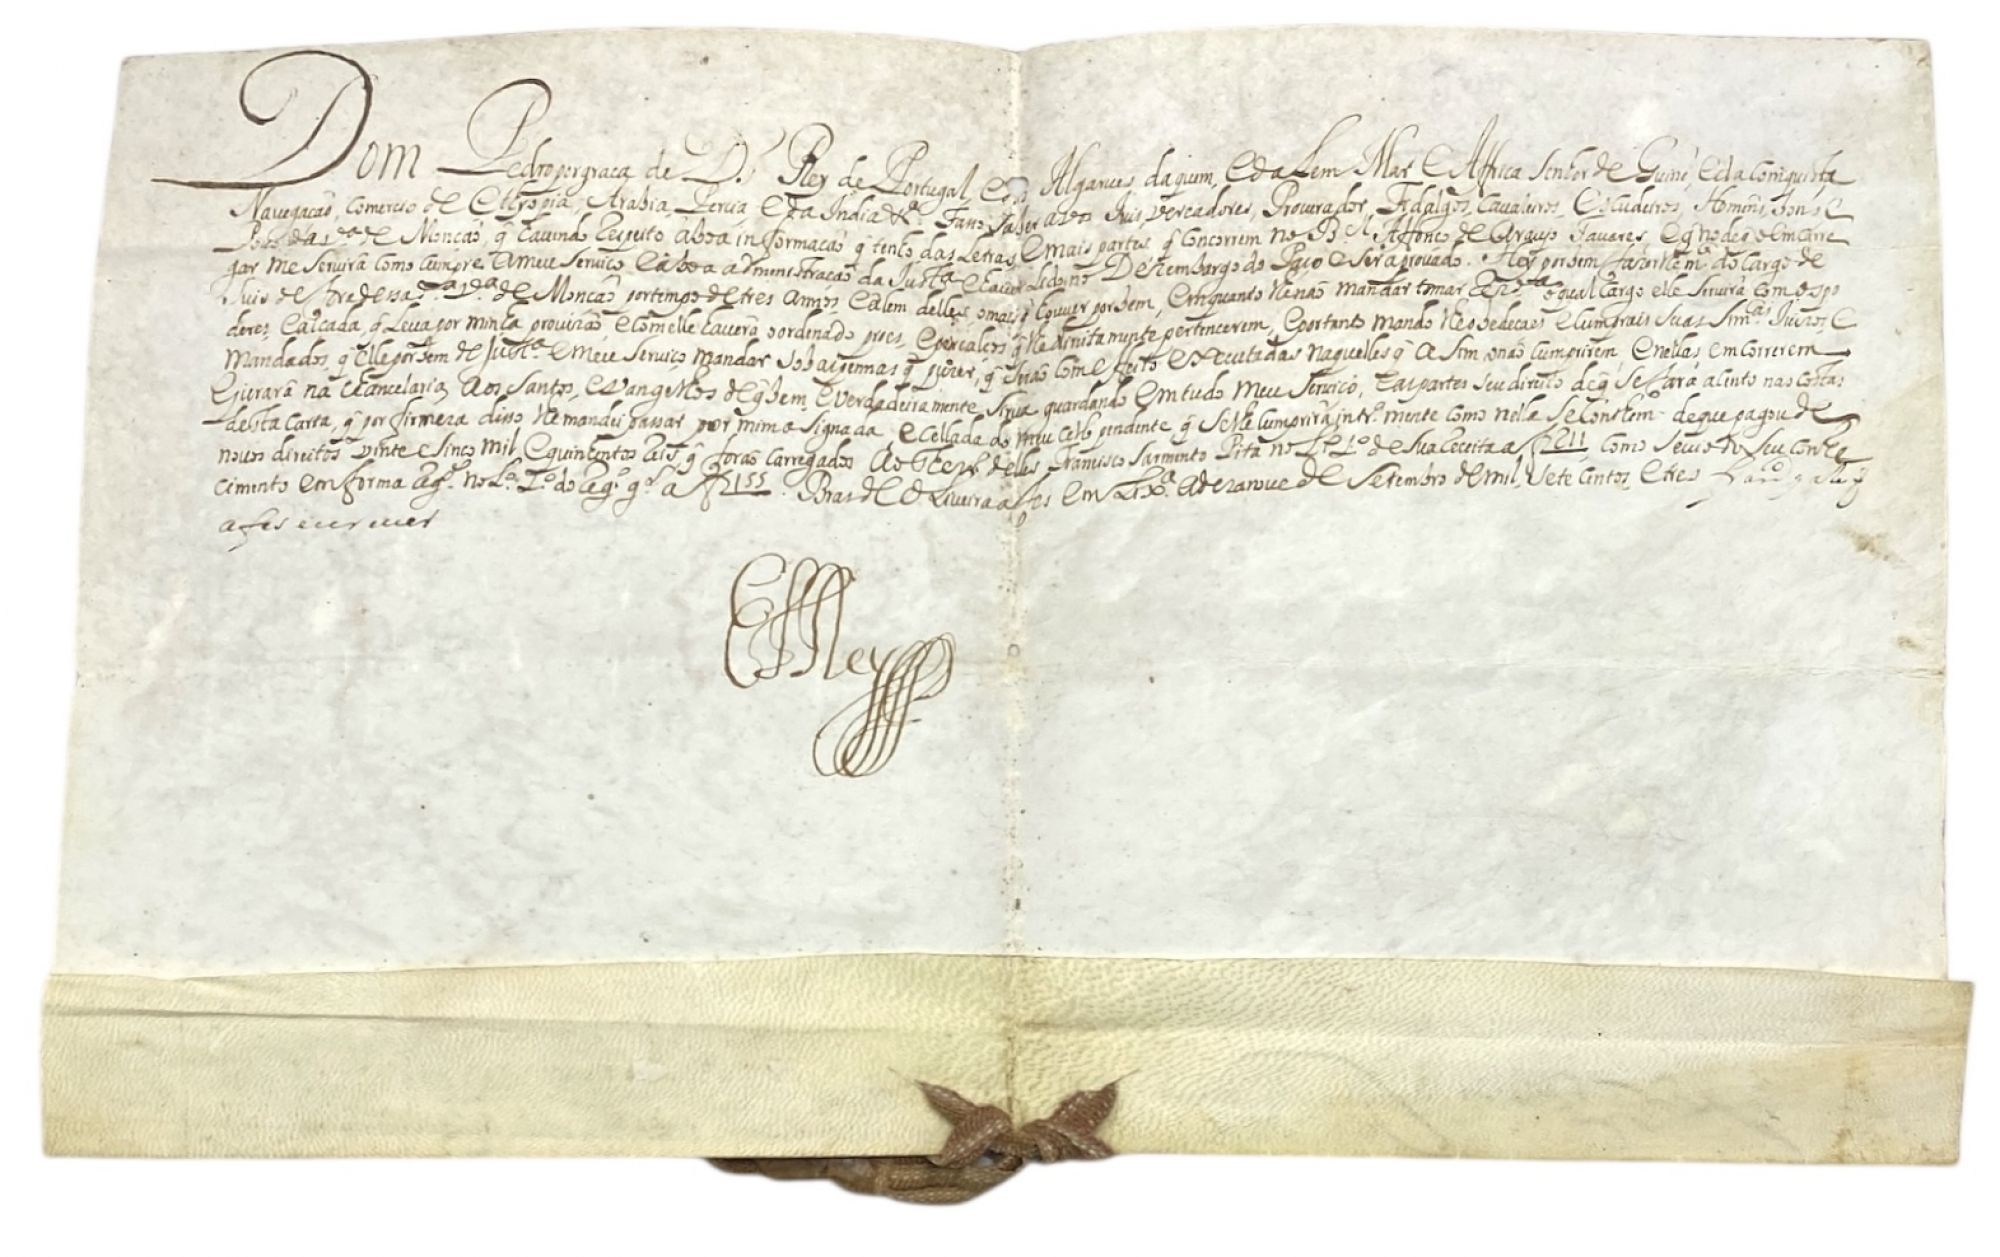 Dom Pedro por graça de D.s Rey de Portugal, e dos Algarves, daquem, e dalem Mar e Affrica senhor de Guiné, e da Comquista
Navegacaõ, comercio de Ethiopia, Arabia, Percia, e da India &.ª Faço saber avos Juis, vereadores, Procurador, Fidalgos, Cavaleiros, Escudeiros, Homẽns, bons e
Povo da V.ª de Moncaõ, q̃ havendo respeito aboa informacaõ q̃ tenho das Letras, e mais partes q̃ concorrem no B.el Affonco de Araujo Tavares, e q̃ no de q̃ o emCarre
gar me servirá como cumpre ameu serviço, e aboa administração da Just.ª e haver Lido no Dezembargo do Paço e ser aprovado. Hey por bem fazer lhe m.ce do Cargo de
Juis de fora dessa d.ª V.ª de Moncaõ por tempo de tres annos, e alem delles, o mais q̃ houver por bem, emquanto lhe naõ mandar tomar rez.ª o qual Cargo elle servirá com o spo
deres, e alcada, q̃ Leva por minha provizaõ e com elle haverá o ordenado proes, e percalços q̃ lhe direitamente pertencerem, e portanto mando lhe obedecaes e cumprais suas sin.ças Juizos, e
Mandados, q̃ elle por bem de Just.ª e meu serviço mandar sob as pennas q̃ puzer, q̃ seraõ com effeito executadas naquelles q̃ asim o naõ cumprirem, e nellas emcorrerem
e jurará na chancelaria, aos santos, evangelhos de q̃ bem, e verdadeiramente, sirva guardando em tudo meu serviço, e as partes seu direito de q̃ se fará acento nas costas
desta carta, q̃ por firmeza disso lhe mandei passar por mim asignada, e cellada do meu cello pendente q̃ se lhe cumprirá intr.ª mente como nella se conthem - de que pagou de
novos direitos vinte e sinco mil, e quinhentos reis q̃ foraõ carregados ao Thez.ro delles Francisco Sarmento Pita no L.º 1.º de sua receita a f 211 como se vio do seu conhe
cimento em forma reg.º no L.º 1.º do reg.º g.l a f 155. Bras de Oliveira a fes em Lix.ª a dezanove de setembro de mil, sete centos, e tres
a fes escrever
ElRey